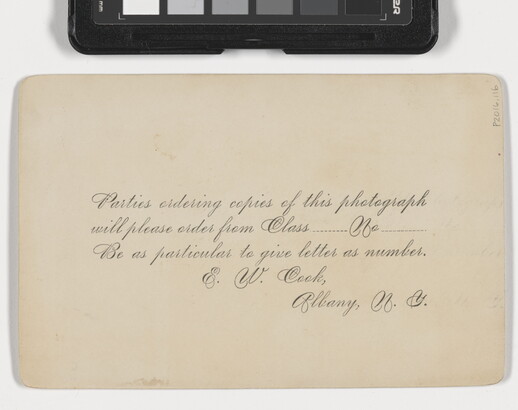 Parties ordering copies of this photograph
will please order from Class ........ No ............
Be as particular to give letter as number.
E. W. Cook,
Albany, N. Y.
P2016.116